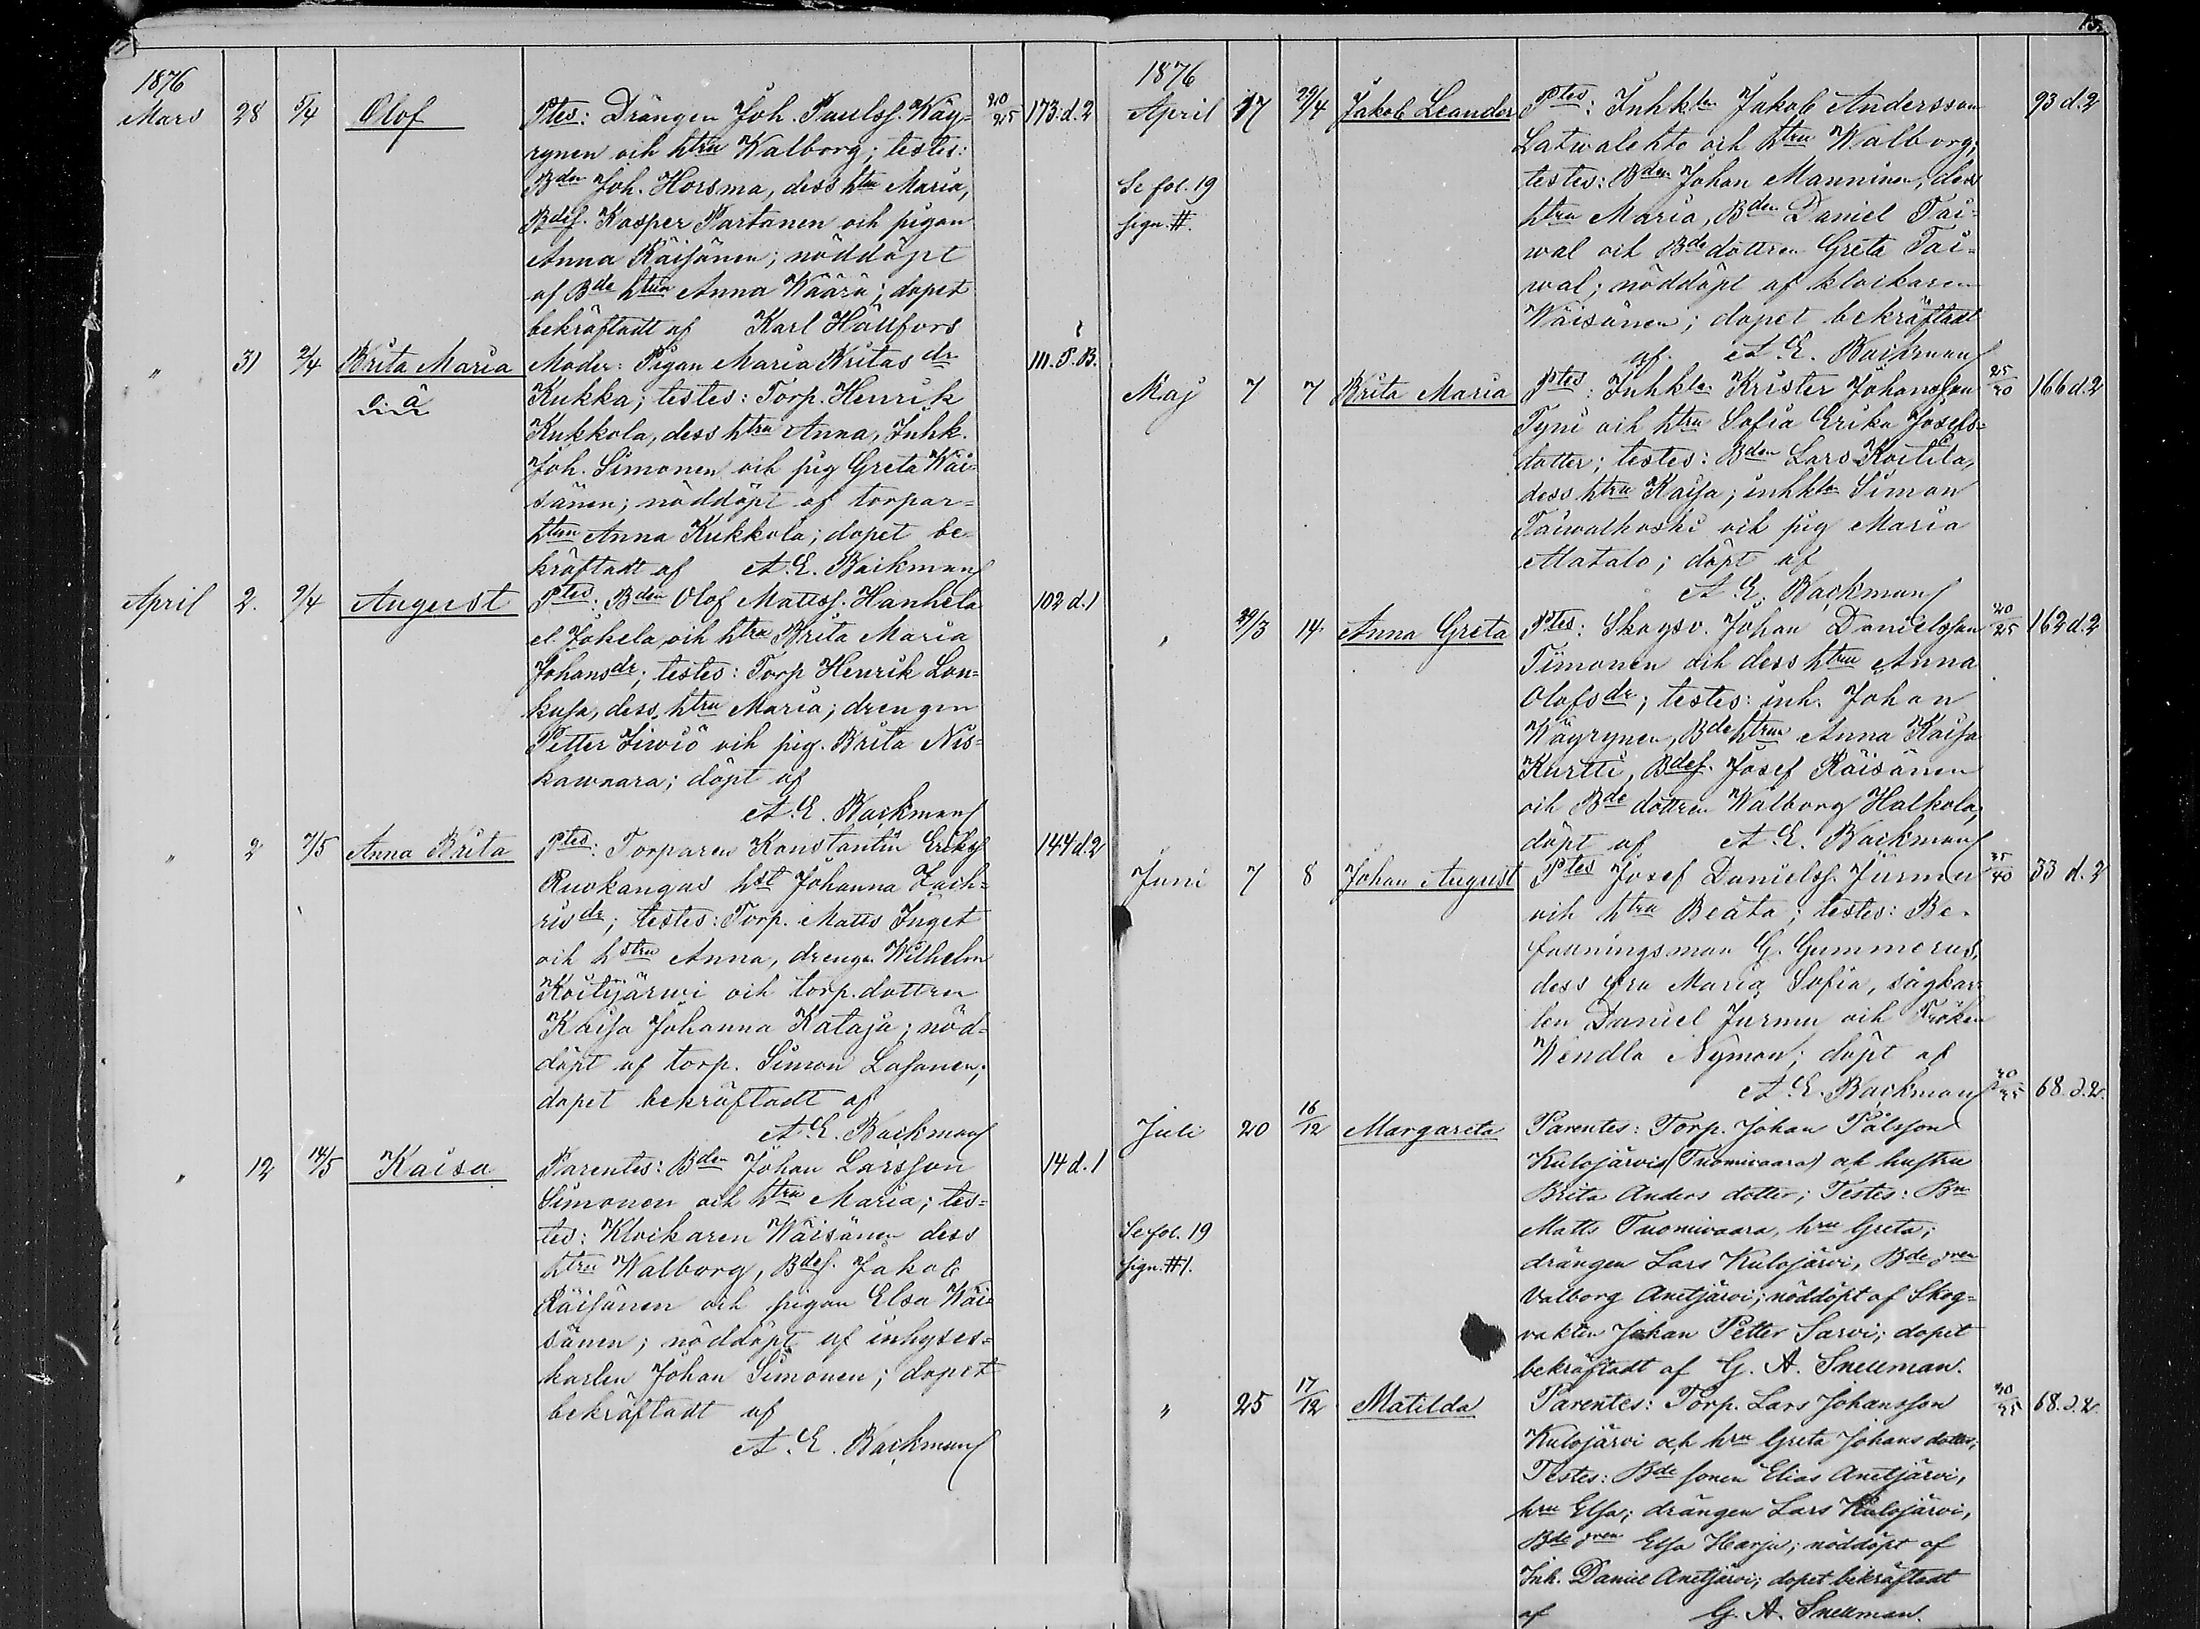 1876
Mars 28 5/4 Olof Ptes: Drängen Joh. Paulss. Käy= 20/25 173.d.2
rynen och htru Walborg; testes:
Bden Joh. Horsma, dess htru Maria,
Bdes. Kasper Partanen och pigan
Anna Räisänen; nöddöpt
af Bde htrun Anna Wäärä; dopet
bekräftadt af Karl Hällfors
" 31 2/4 Brita Maria Moder: Pigan Maria Kritas dr 111.F.B.
o. ä. Kukka; testes: Torp. Henrik
Kukkola, dess htru Anna, Inhk.
Joh. Simonen och pig Greta Wäi=
sänen; nöddöpt af torpar=
htrun Anna Kukkola; dopet be=
kräftadt af A. E. Backman
April 2. 9/4 August Ptes: Bden Olof Mattss. Hanhela 102 d.1
el. Johela och htru Brita Maria
Johansdr; testes: Torp Henrik Lon=
kusa, dess htru Maria; drengen
Petter och pig. Brita Nis=
kawaara; döpt af
A. E. Backman
" 2 7/5 Anna Brita Ptes: Torparen Konstantin Erikss 144 d.2
Ruokangas hst Johanna Zach=
risdr; testes: Torp. Matts Inget
och hstru Anna, drengen Wilhelm
Koitijärwi och torp.dottren
Kaisa Johanna Kataja; nöd=
döpt af torp. Simon Lasanen;
dopet bekräftadt af
A. E. Backman
" 12 14/5 Kaisa Parentes: Bden Johan Larsson 14 d.1
Simonen och htru Maria; tes=
tes: Klockaren Wäisänen dess
htru Walborg, Bdes. Jakob
Räisänen och pigan Elsa Wäi=
sänen; nöddöpt af inhyses=
karlen Johan Simonen; dopet
bekräftadt af
A. E. Backman
15.
1876
April 17 29/4 Jakob Leander Ptes: Inhkln Jakob Andersson 93 d.2
Latwalehto och htru Walborg;
Se fol. 19 testes: Bden Johan Manninen, dess
sign. #. htru Maria, Bden Daniel Tai=
wal och Bde dottren Greta Tai=
wal; nöddöpt af klockaren
Wäisänen; dopet bekräftadt
af A. E. Backman
Maj 7 7 Brita Maria Ptes: Inhkln Krister Johansson 25/30 166 d.2
Tyni och htru Sofia Erika Josefs=
dotter; testes: Bden Lars Koitila,
dess htru Kaisa; inhkln Simon
Taiwalkoski och pig Maria
Matala; döpt af
A. E. Backman
" 29/3 14 Anna Greta Ptes: Skogsv. Johan Danielsson 20/25 162 d.2
Timonen och dess htru Anna
Olofsdr; testes: inh. Johan
Käyrynen, Bde htrun Anna Kaisa
Kurtti, Bdes. Josef Räisänen
och Bde dottren Walborg Halkola,
döpt af A. E. Backman
Juni 7 8 Johan August Ptes Josef Danielss. Jurmu 35/40 33 d.2
och htru Beata; testes: Be=
fallningsman G. Gummerus,
dess fru Maria Sofia, sågkar=
len Daniel Jurmu och Fröken
Wendla Nyman; döpt af
A. E. Backman 68.d.2.
Juli 20 16/12 Margareta Parentes: Torp. Johan Pålsson
Kulojärvi (Tuomivaara) och hustru
Brita Anders dotter; Testes: Bn
Se fol. 19 Matts Tuomivaara, hru Greta;
sign. #1. drängen Lars Kulojärvi, Bde dren
Valborg Anetjärvi; nöddöpt af Skog=
vakten Johan Petter Sarvi; dopet
bekräftadt af G. A. Snellman.
" 25 17/12 Matilda Parentes: Torp. Lars Johansson 68.d.2.
Kulojärvi och hru Greta Johans dotter;
Testes: Bde sonen Elias Anetjärvi,
hru Elsa; drängen Lars Kulojärvi,
Bde dren Elsa Harju; nöddöpt af
Inh. Daniel Anetjärvi; dopet bekräftadt
af G. A. Snellman.